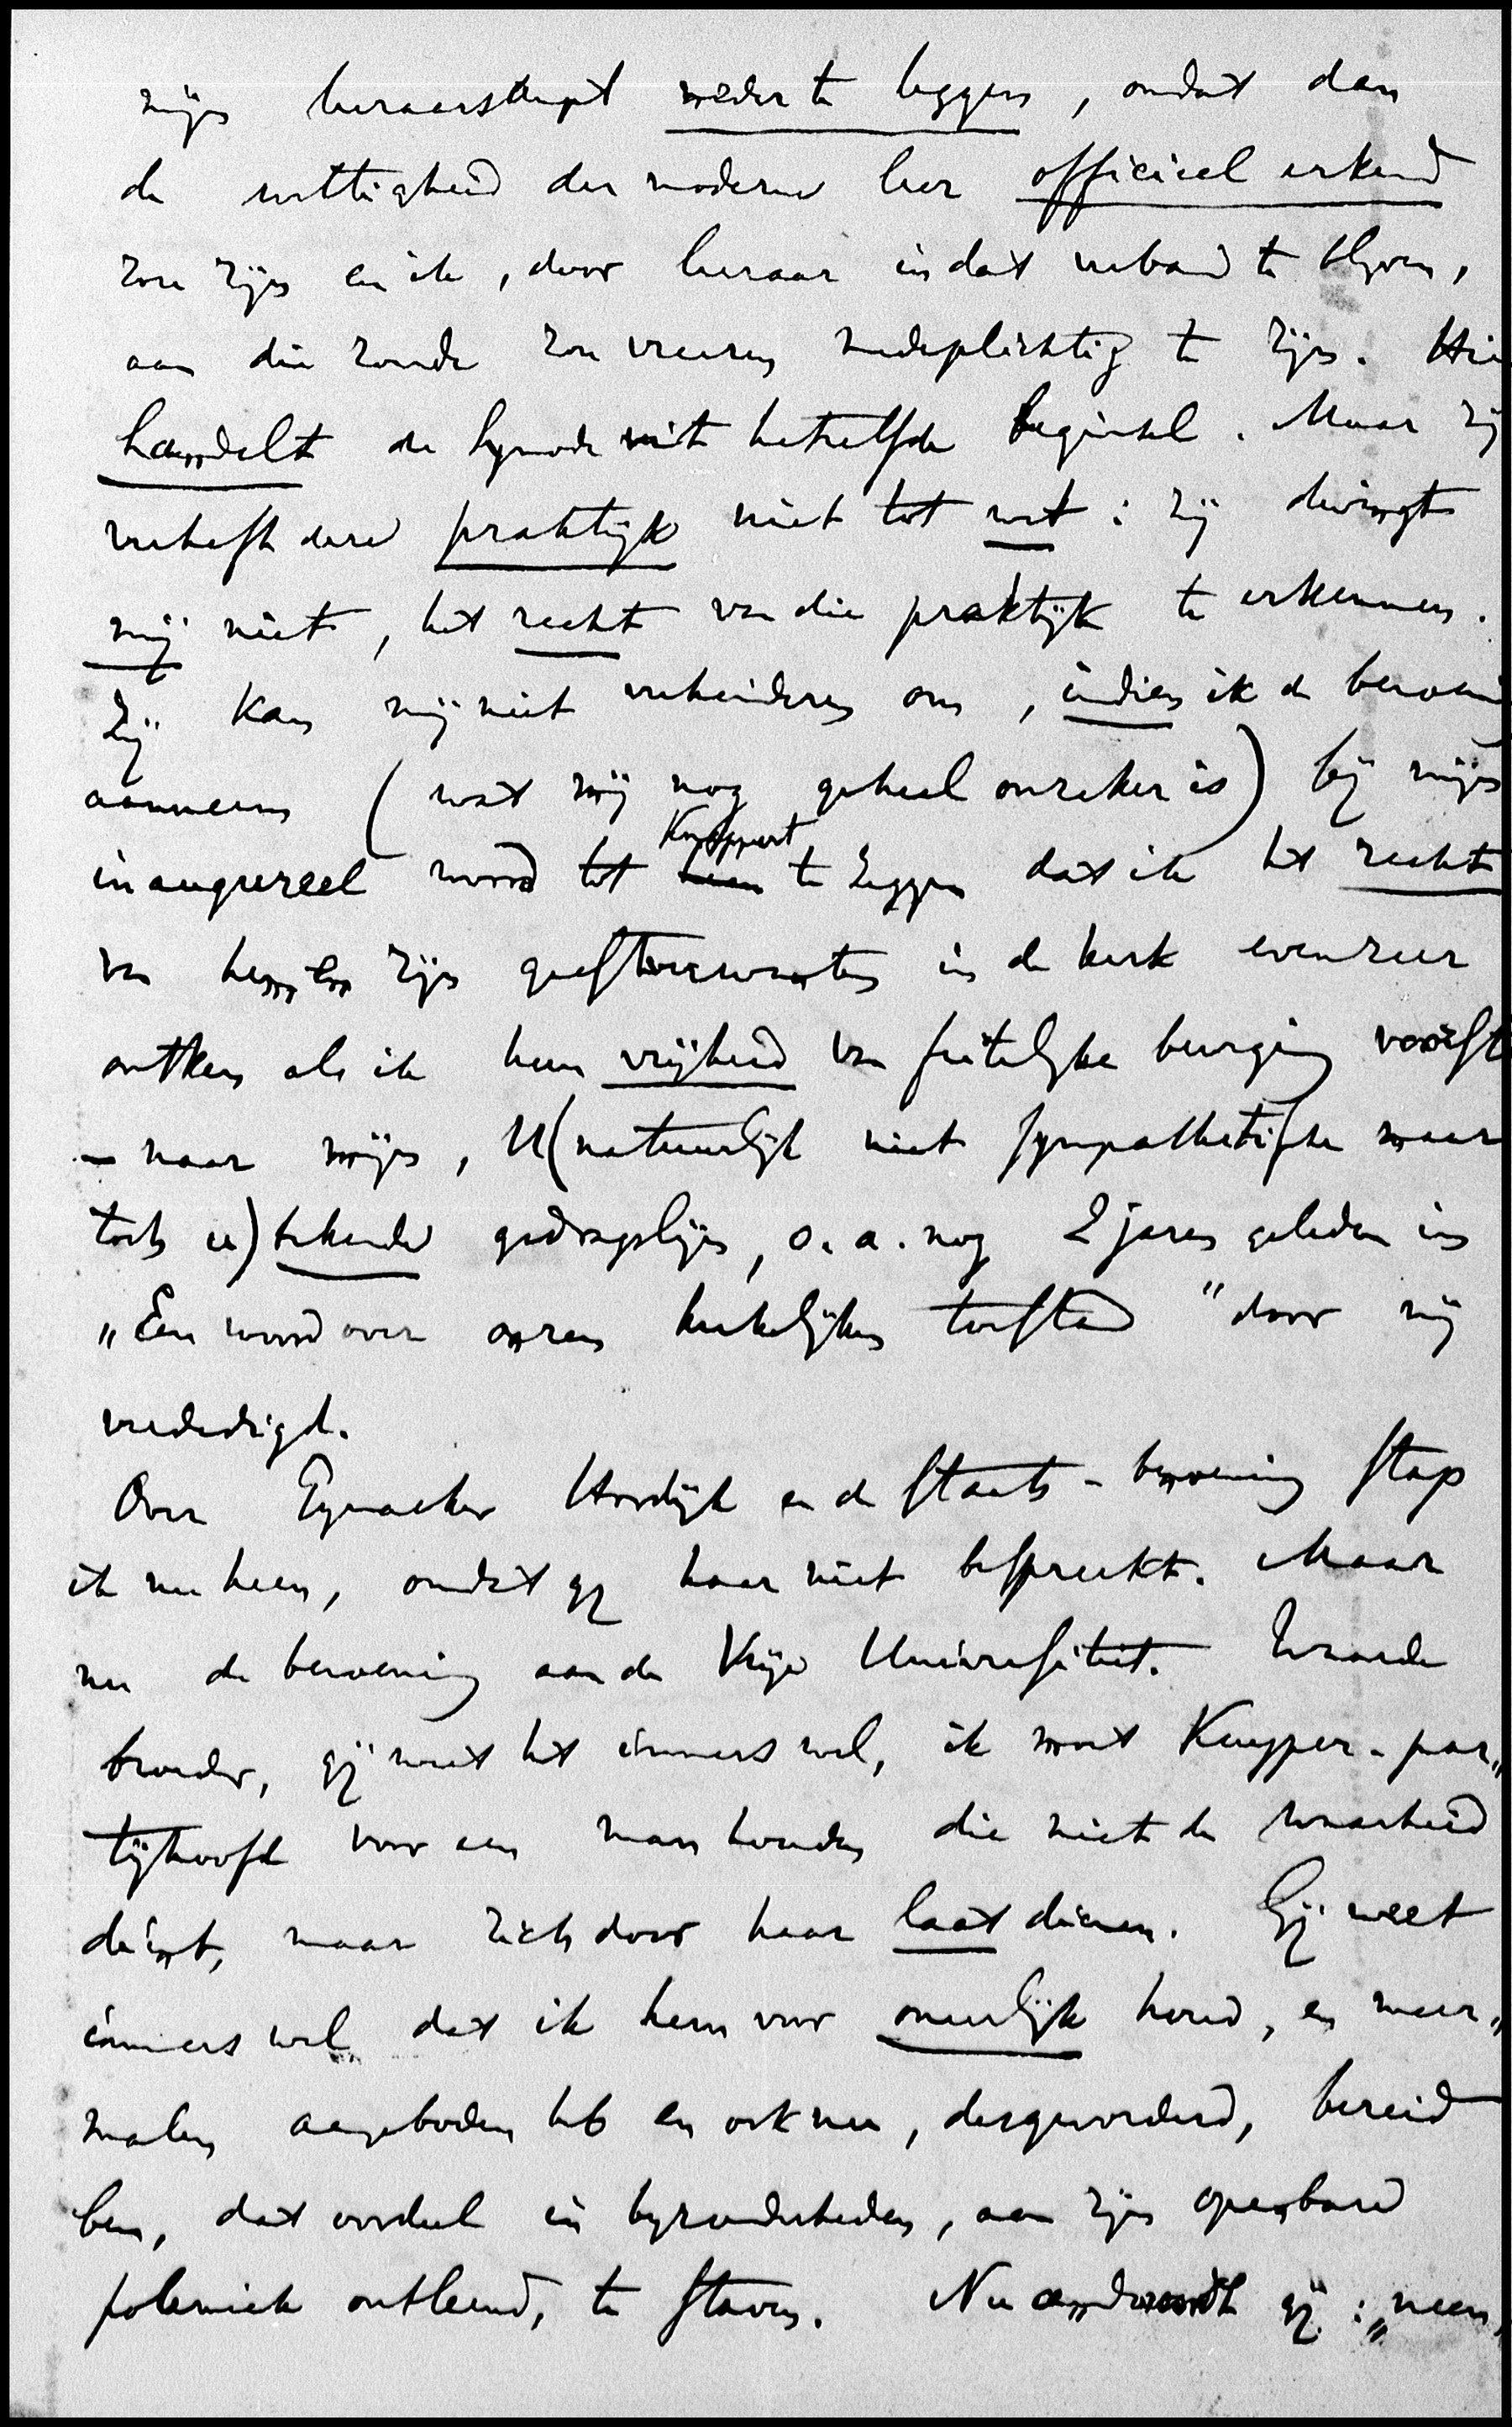 mijn leraarschapt neder te leggen, omdat dan
de wettigheid der moderne leer officieel erkend
zou zijn en ik, door leeraar in dat verband te blijven,
aan die zonde zou vreezen medeplichtig te zijn. Hier
handelt de Synode uit hetzelfde beginsel. Maar zij
verheft deze praktijk niet tot wet: zij dwingt
mij niet, het recht van die praktijk te erkennen.
Zij kan mij niet verhinderen om, indien ik de beroeping
aanneem (wat mij nog geheel onzeker is) bij mijn
inaugureel woord tot Knappert te zeggen dat ik het recht
van hem en zijn geestverwanten in de kerk evenzeer
ontken als ik hun vrijheid van feitelijke beweging voorsta
– naar mijn, U (natuurlijk niet sympathetische maar
toch u) bekende gedragslijn, o.a. nog 2 jaren geleden in
„Een woord over onzen kerkelijken toestand" door mij
verdedigd.
Over Hordijk en de Staats-benoeming stap
ik nu heen, omdat gij haar niet bespreekt. Maar
nu de benoeming aan de Vrije Universiteit. Waarde
broeder, gij weet het immers wel, ik moet Kuyper-par„
tijhoofd voor een man houden die niet de waarheid
dient, maar zich door haar laat dienen. Gij weet
immers wel dat ik hem voor oneerlijk houd, en meer„
malen aangeboden heb en ook nu, desgevorderd, bereid
ben, dat oordeel in bijzonderheden, aan zijn openbare
polemiek ontleend, te staven. Nu antwoordt gij: „neen,